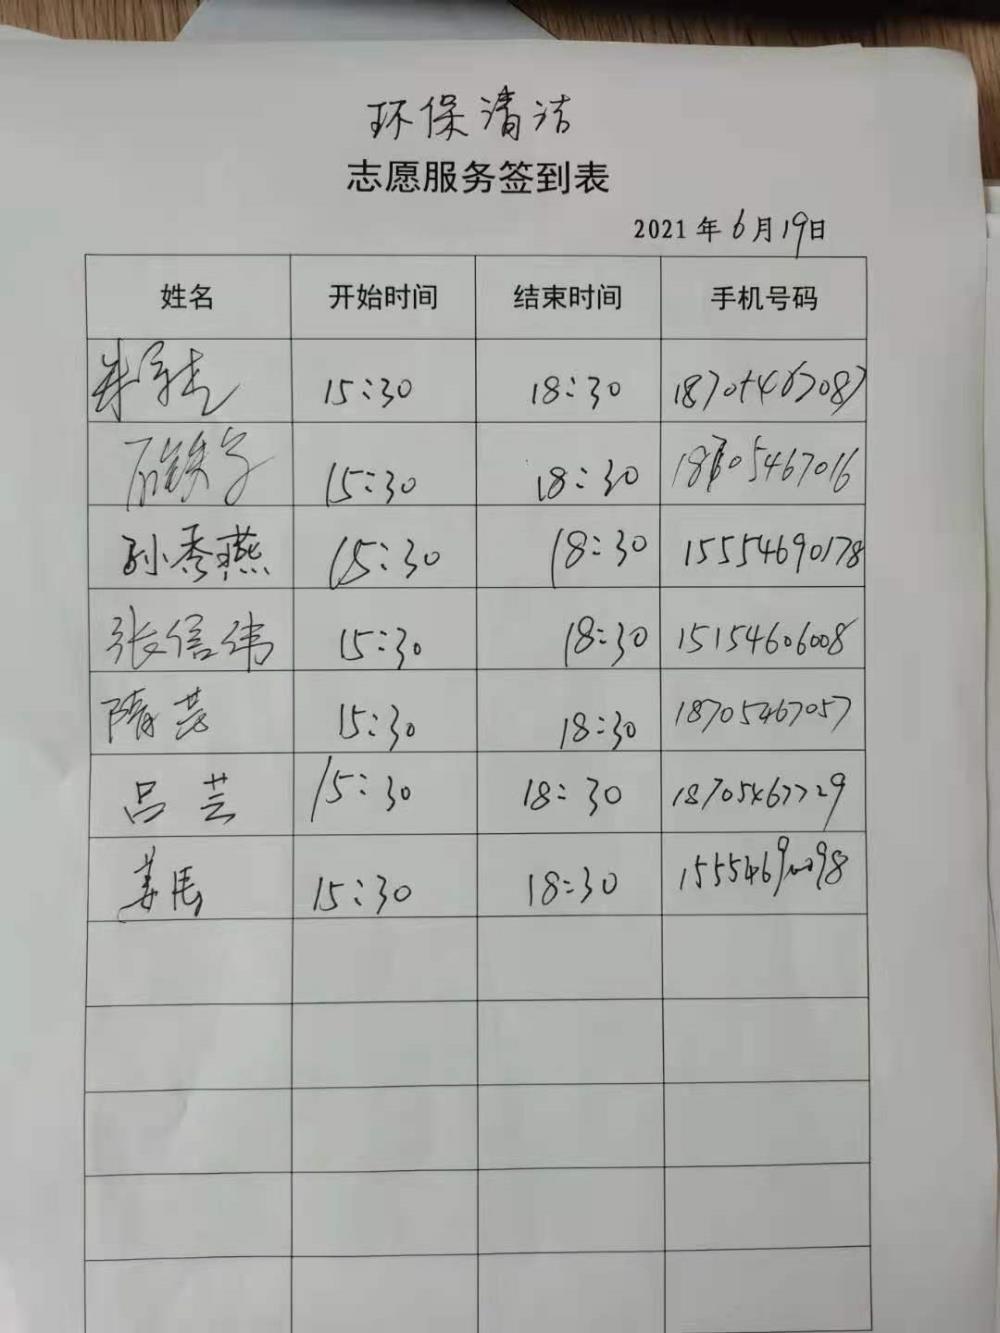 环保清洁
志愿服务签到表
2021年6月19日
姓名 开始时间 结束时间 手机号码
15:30 18:30 18705467087
15:30 18:30 18705467016
孙秀燕 15:30 18:30 15554690178
张信伟 15:30 18:30 15154606008
隋芸 15:30 18:30 18705467057
吕芸 15:30 18:30 18705467729
姜伟 15:30 18:30 15554690098